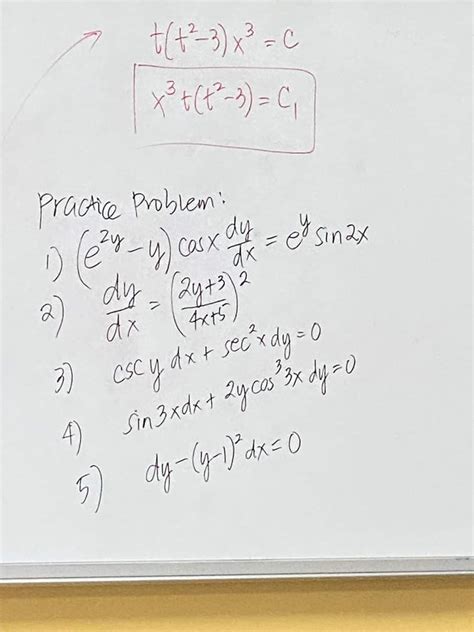 t(t²-3)x³ = C
x³t(t²-3) = C₁
Practice Problem:
1) (e^{2y} - y) cosx dy/dx = e^y sin2x
2) dy/dx = ((2y+3)/(4x+5))²
3) csc y dx + sec²x dy = 0
4) sin3xdx + 2ycos³3x dy = 0
5) dy - (y-1)² dx = 0